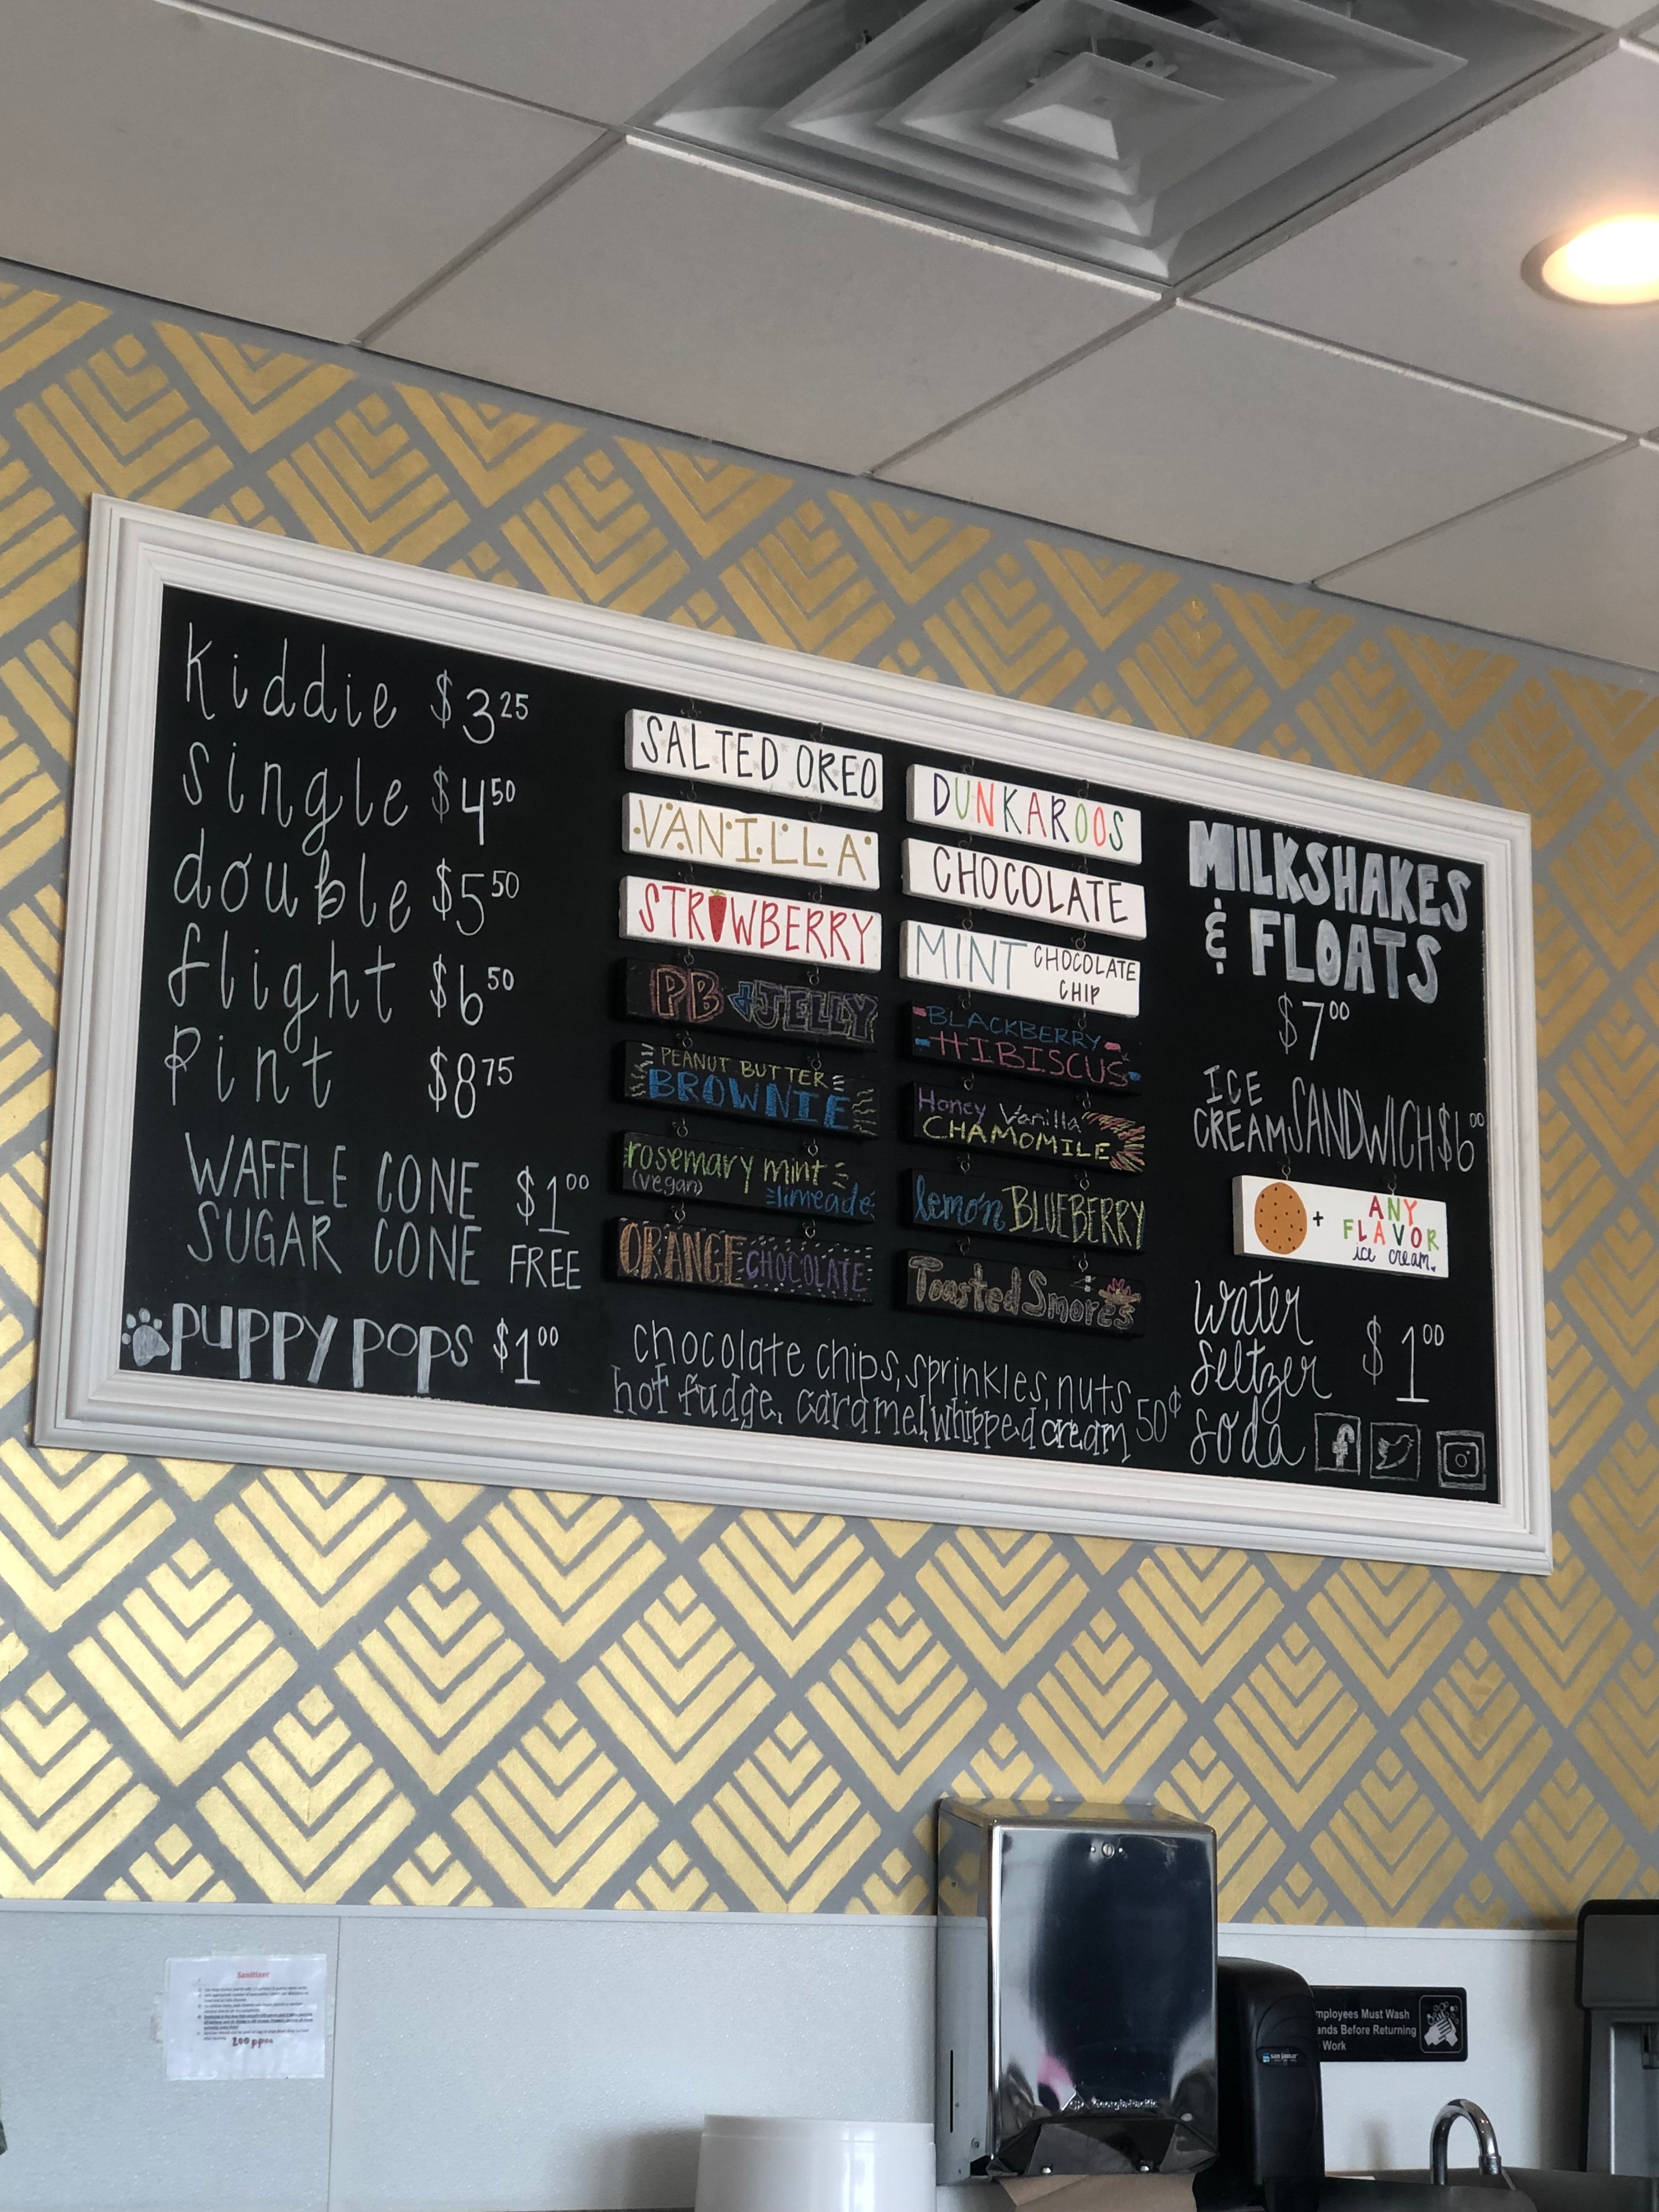 kiddie $3 25
single $4 50
double $5 50
flight $6 50
Pint $8 75
WAFFLE CONE $1 00
SUGAR CONE FREE
PUPPY POPS $1 00
SALTED OREO
VANILLA
STRWBERRY
PB & JELLY
PEANUT BUTTER
BROWNIE
rosemary mint
(vegan) limeade
ORANGE CHOCOLATE
DUNKAROOS
CHOCOLATE
MINT CHOCOLATE
CHIP
BLACKBERRY
HIBISCUS
Honey Vanilla
CHAMOMILE
lemon BLUEBERRY
Toasted Smores
chocolate chips, sprinkles, nuts
hot fudge, caramel, whipped cream 50¢
MILKSHAKES
& FLOATS
$7 00
ICE
CREAM SANDWICH $6 00
+ ANY
FLAVOR
ice cream.
water
seltzer $1 00
soda
f
Sanitizer
200 ppm
Georgia-Pacific
san jamar
mployees Must Wash
ands Before Returning
Work